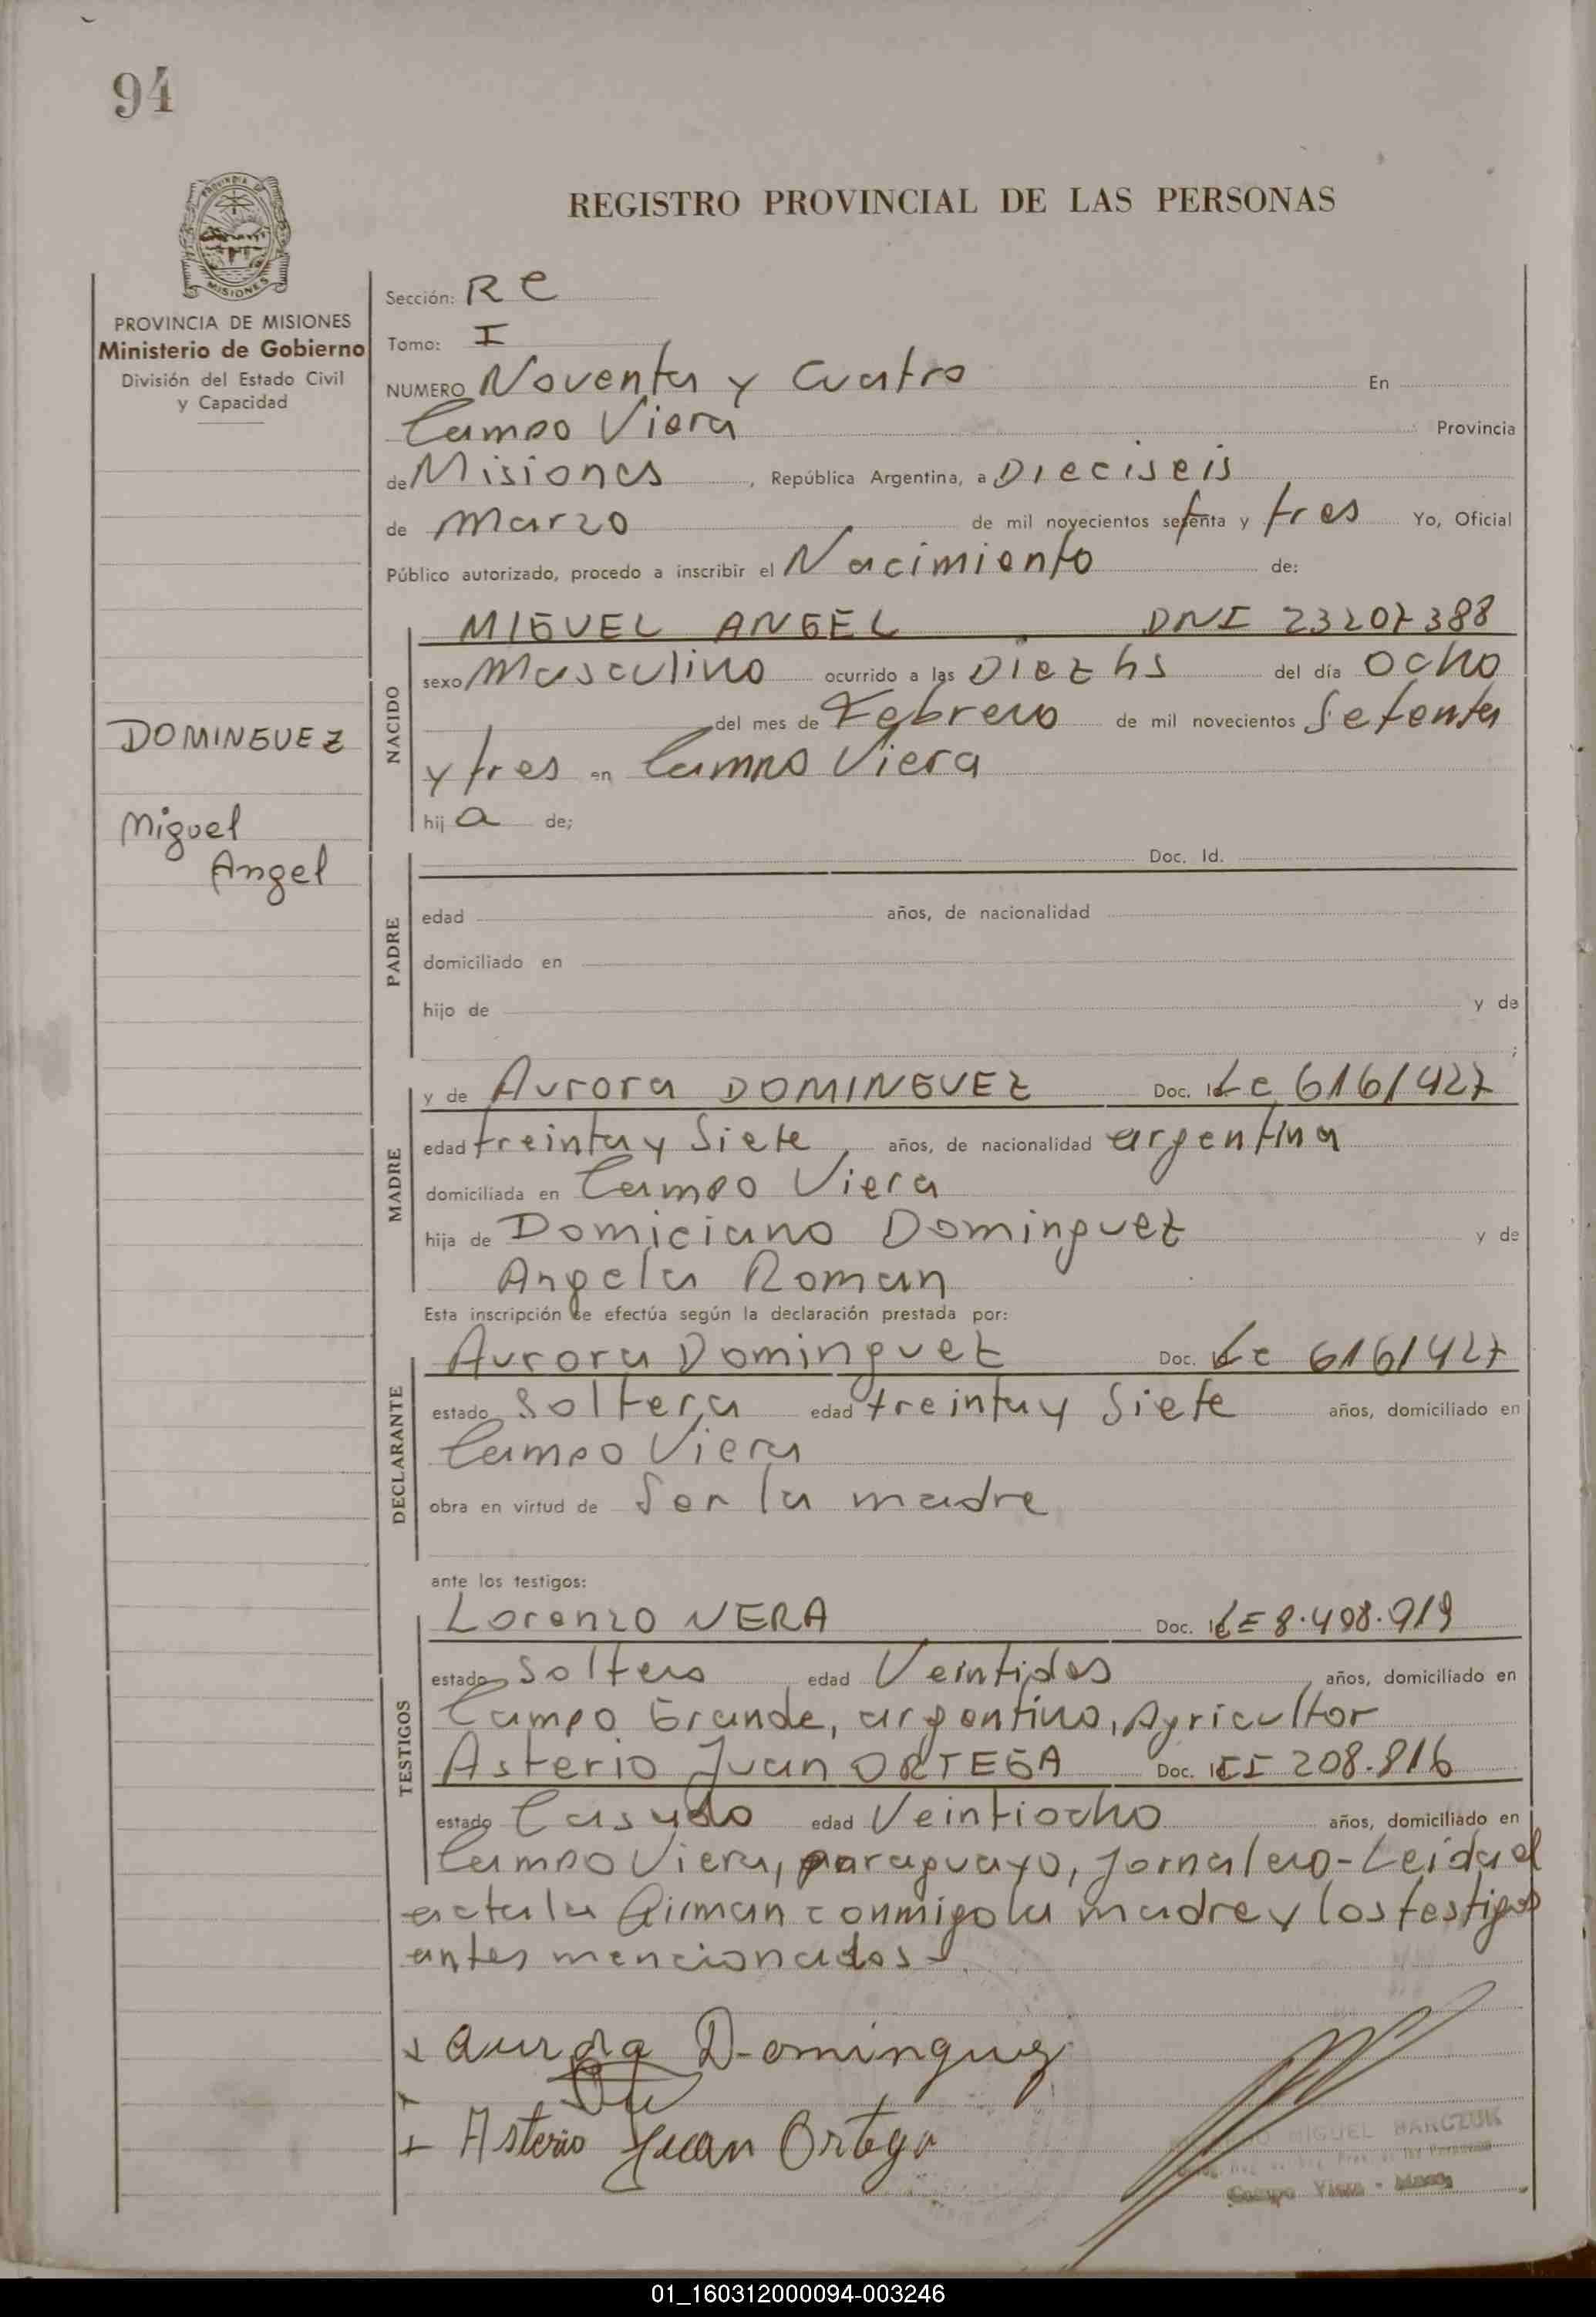 94
REGISTRO PROVINCIAL DE LAS PERSONAS
PROVINCIA DE MISIONES
Ministerio de Gobierno
División del Estado Civil
y Capacidad
DOMINGUEZ
Miguel
Angel
Sección: Re
Tomo: I
NUMERO Noventa y Cuatro En
Campo Viera Provincia
de Misiones, República Argentina, a Dieciseis
de Marzo de mil novecientos setenta y tres Yo, Oficial
Público autorizado, procedo a inscribir el Nacimiento de:
NACIDO
MIGUEL ANGEL DNI 23207388
sexo Masculino ocurrido a las Diez hs del día Ocho
del mes de Febrero de mil novecientos Setenta
y tres en Campo Viera
hij a de;
PADRE
Doc. Id.
edad años, de nacionalidad
domiciliado en
hijo de y de
;
MADRE
y de Aurora DOMINGUEZ Doc. Id Lc 6161427
edad treinta y Siete años, de nacionalidad argentina
domiciliada en Campo Viera
hija de Domiciano Dominguez y de
Angela Roman
Esta inscripción se efectúa según la declaración prestada por:
DECLARANTE
Aurora Dominguez Doc. Lc 6161427
estado Soltera edad treinta y Siete años, domiciliado en
Campo Viera
obra en virtud de Ser la madre
ante los testigos:
TESTIGOS
Lorenzo NERA Doc. Id LE 8.498.919
estado Soltero edad Veintidos años, domiciliado en
Campo Grande, argentino, Agricultor
Asterio Juan ORTEGA Doc. Id CI 208.816
estado Casado edad Veintiocho años, domiciliado en
Campo Viera, paraguayo, Jornalero - Leida el
acta la firman conmigo la madre y los testigos
antes mencionados -
Aurora Dominguez
Asterio Juan Ortega
MIGUEL BARCZUK
Campo Viera - Mnes.
01_160312000094-003246